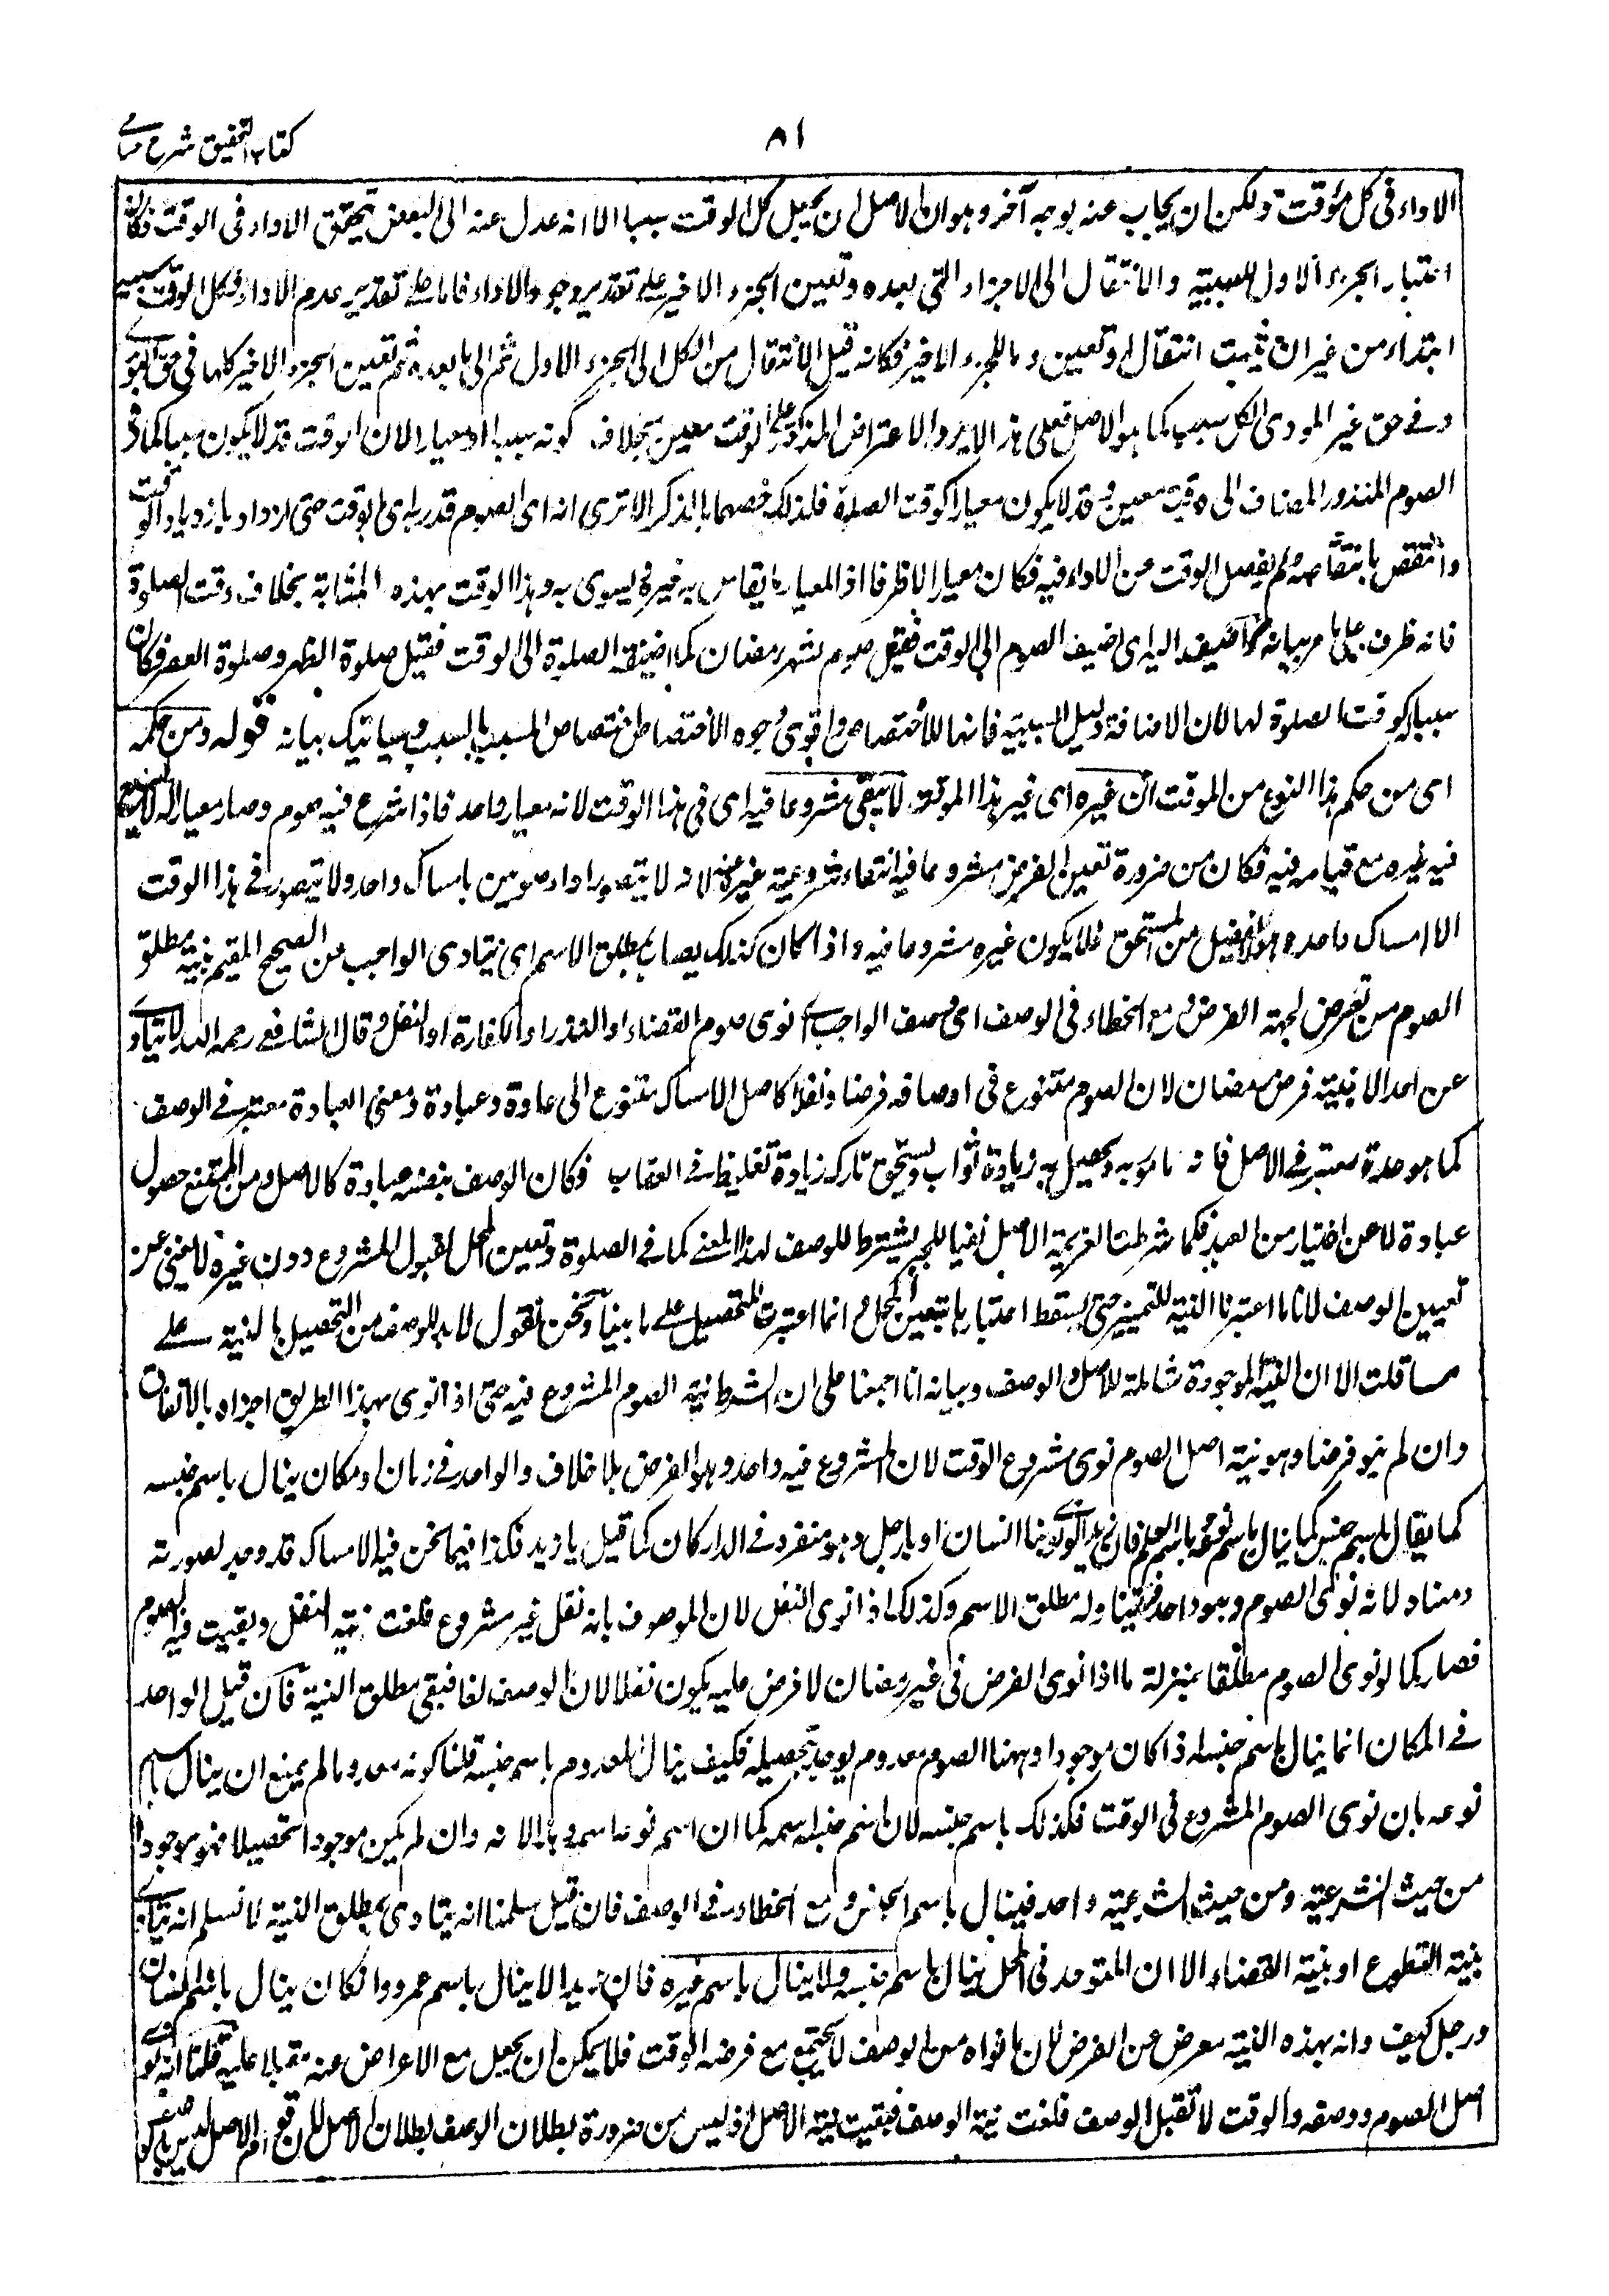 كتاب التحقيق شرح حسامي
٨١
الاداء في كل مؤقت ولكن ان يجاب عنه بوجه آخر وهو ان الاصل ان يجعل كل الوقت سببا الا انه عدل عنه الى البعض ليتحقق الاداء في الوقت فكان
اعتبار الجزء الاول للسببية والانتقال الى الاجزاء التي بعده وتعين الجزء الاخير على تقدير وجود الاداء فاما على تقدير عدم الاداء فكل الوقت سببه
ابتداء من غير ان يثبت انتقال او تعين وما للجزء الاخير فكانه قيل الانتقال من الكل الى الجزء الاول ثم الى ما بعده ثم تعين الجزء الاخير كلها في حق المودي
وفي حق غير المودي الكل سبب كما هو الاصل فعلى هذا لا يرد الاعتراض المذكور على الوقت معين بخلاف كونه سببا او معيارا لان الوقت قد لا يكون سببا كما في
الصوم المنذور المضاف الى وقت معين وقد لا يكون معيارا كوقت الصلوة فلذلك خصهما بالذكر الا ترى انه اى الصوم قدر به اى بالوقت حتى ازداد بازدياد الوقت
وانتقص بانتقاصه ولم يفضل الوقت عن الاداء فيه فكان معيارا لا ظرفا اذ المعيار ما يقاس به غيره ويسوى به وهذا الوقت بهذه المثابة بخلاف وقت الصلوة
فانه ظرف على ما مر بيانه واضيف اليه اى اضيف الصوم الى الوقت فقيل صوم شهر رمضان كما اضيفة الصلوة الى الوقت فقيل صلوة الظهر وصلوة العصر فكان
سببا كوقت الصلوة لها لان الاضافة دليل السببية فانها للاختصاص واقوى وجوه الاختصاص اختصاص المسبب بالسبب وسياتيك بيانه قوله ومن حكمه
اى من حكم هذا النوع من الموقت ان غيره اى غير هذا الموقت لا يبقى مشروعا فيه اى في هذا الوقت لانه معيار واحد فاذا شرع فيه صوم وصار معيارا له لا يسع
فيه غيره مع قيامه فيه فكان من ضرورة تعين الفرض مشروعا فيه انتفاء مشروعية غيره عنه لانه لا يتصور اداء صومين بامساك واحد ولا يتصور في هذا الوقت
الا امساك واحد وهو لا يفضل من المستحق فلا يكون غيره مشروعا فيه واذا كان كذلك يصاب بمطلق الاسم اى يتادى الواجب عن الصحيح المقيم بنية مطلق
الصوم من تعرض لجهة الفرض ومع الخطاء في الوصف اى وصف الواجب بان نوى صوم القضاء او النذر او الكفارة او النفل وقال الشافعي رحمه الله لا يتادى
عن احد الا بنية فرض رمضان لان الصوم متنوع في اوصافه فرضا ونفلا كاصل الامساك متنوع الى عادة وعبادة ومعنى العبادة معتبر في الوصف
كما هو معتبر في الاصل فانه مامور به ويحصل به زيادة ثواب ويستحق تاركه زيادة تغليظ في العقاب فكان الوصف بنفسه عبادة كالاصل ومن الممتنع حصول
عبادة لا عن اختيار من العبد فكما شرطت العزيمة الاصل نفيا للجبر يشترط للوصف لهذا المعنى كما في الصلوة وتعيين المحل لقبول المشروع دون غيره لا يغنى عن
تعيين الوصف لانا ما اعتبرنا النية للتمييز حتى يسقط اعتبارها بتعين المحل وانما اعتبرت لتحصيل على ما بينا ونحن نقول لا بد للوصف من التحصيل بالنية على
ما قلت الا ان النية الموجودة شاملة للاصل والوصف وبيانه انا اجمعنا على ان الشرط نية الصوم المشروع فيه حتى اذا نوى بهذا الطريق اجزاه بالاتفاق
وان لم ينو فرضا وهو بنية اصل الصوم نوى مشروع الوقت لان المشروع فيه واحد وهو الفرض بلا خلاف والواحد في زمان او مكان ينال باسم جنسه
كما ينال باسم نوعه وباسم العلم فان زيدا لو نودي يا انسان او يا رجل وهو منفرد في الدار كان كما قيل يا زيد فكذا فيما نحن فيه الامساك قد وجد بصورته
ومعناه لانه نوى الصوم وهو واحد فيتناوله مطلق الاسم وكذلك اذا نوى النفل لان الموصوف بانه نفل غير مشروع فلغت نية النفل وبقيت نية الصوم
فصار كما لو نوى الصوم مطلقا بمنزلة ما اذا نوى الفرض في غير رمضان لا فرض عليه يكون نفلا لان الوصف لغا فبقي مطلق النية فان قيل الواحد
في المكان انما ينال باسم جنسه اذا كان موجودا وههنا الصوم معدوم يوجد بتحصيله فكيف ينال المعدوم باسم جنسه قلنا كونه معدوما لم يمنع ان ينال باسم
نوعه بان نوى الصوم المشروع في الوقت فكذلك باسم جنسه لان اسم جنسه اسمه كما ان اسم نوعه اسمه وهذا لانه وان لم يكن موجودا تحصيلا فهو موجودا
من حيث الشرعية ومن حيث الشرعية واحد فينال باسم الجنس ومع الخطاء في الوصف فان قيل سلمنا انه يتادى بمطلق النية لا نسلم انه يتادى
بنية التطوع او بنية القضاء الا ان المتوحد في المحل ينال باسم جنسه ولا ينال باسم غيره فان زيدا لا ينال باسم عمرو وان كان ينال باسم انسان
ورجل كيف وانه بهذه النية معرض عن الفرض لان ما نواه من الوصف لا يجتمع مع فرضه الوقت فلا يمكن ان يجعل مع الاعراض عنه مقبلا عليه قلنا انه نوى
اصل الصوم ووصفه والوقت لا تقبل الوصف فلغت نية الوصف فبقيت نية الاصل اذ ليس من ضرورة بطلان الوصف بطلان الاصل